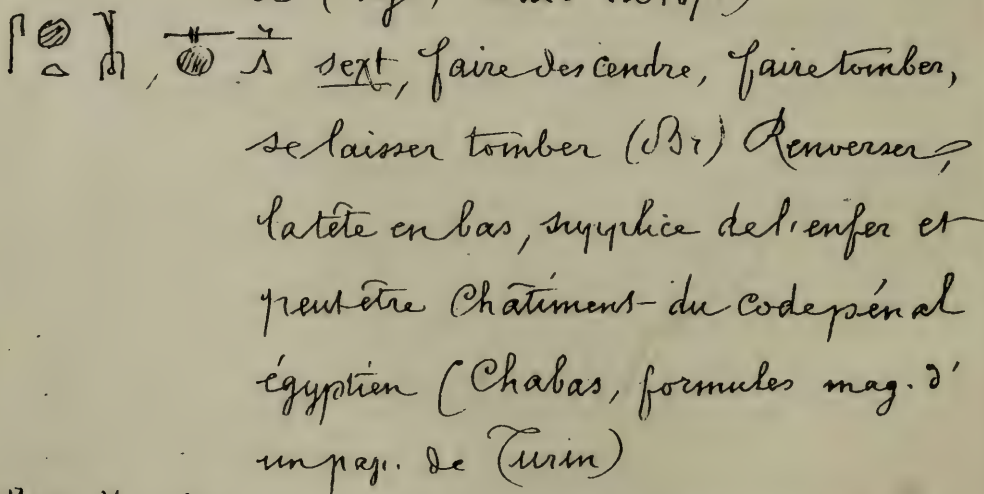 sext, faire descendre, faire tomber,
se laisser tomber (Br) Renverser,
la tête en bas, supplice de l'enfer et
peut être Châtiment du code pénal
égyptien (Chabas, formules mag. d'
un pap. de Turin)